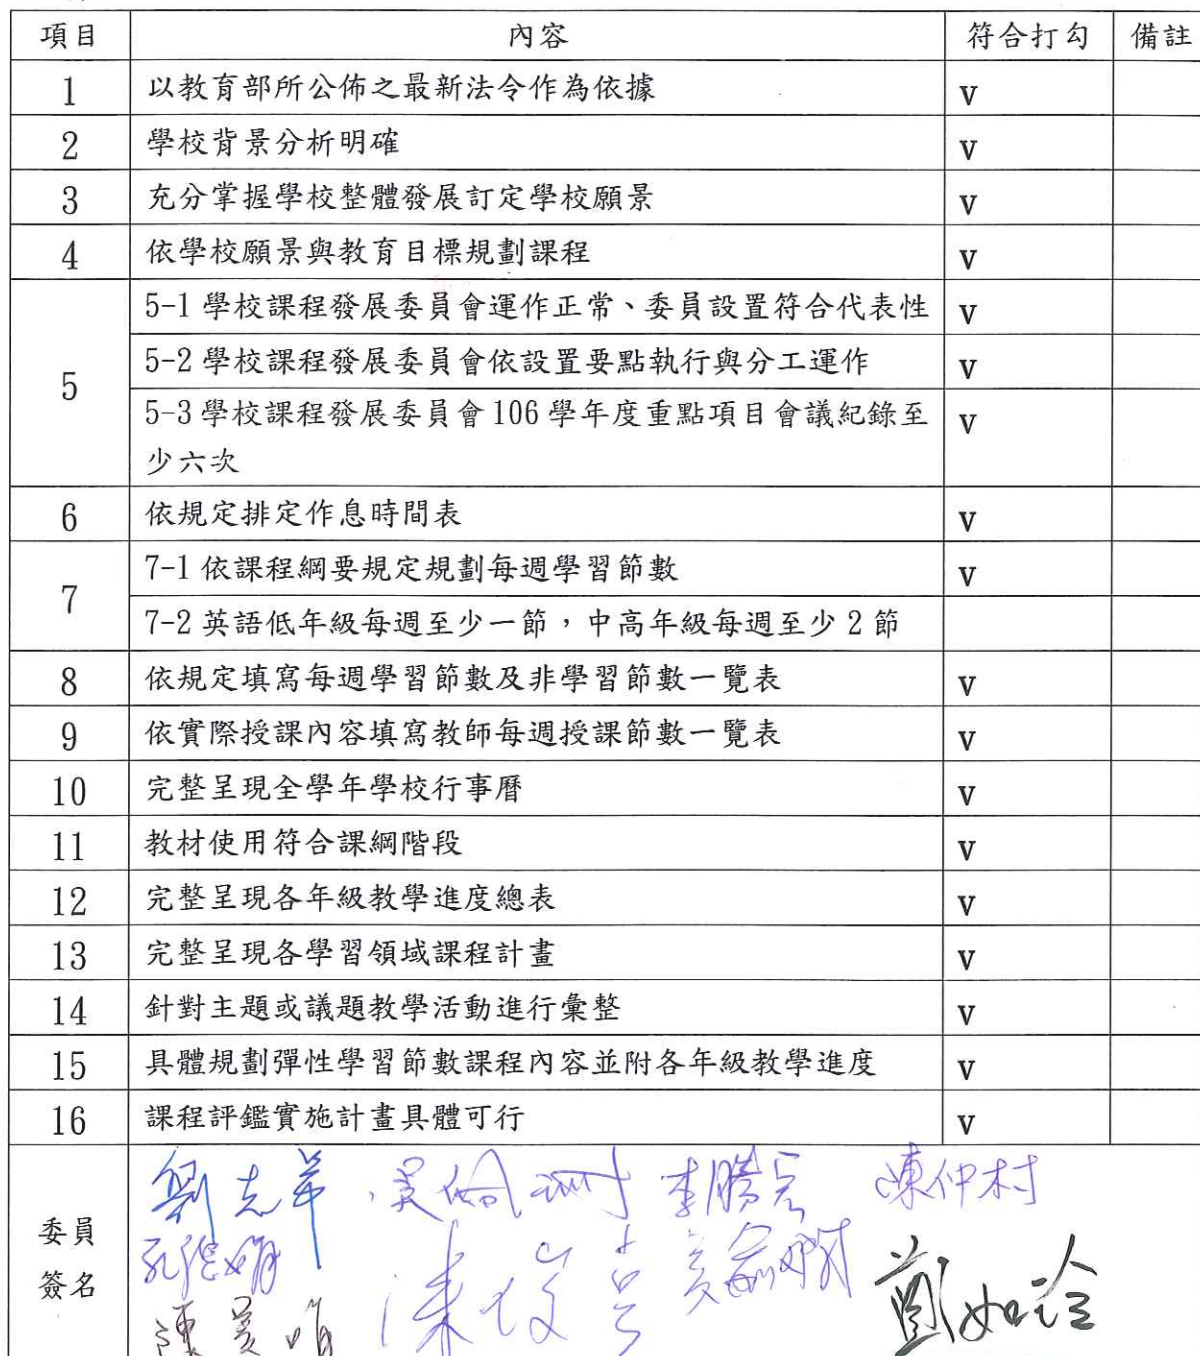 項目 內容 符合打勾 備註
1 以教育部所公佈之最新法令作為依據 v
2 學校背景分析明確 v
3 充分掌握學校整體發展訂定學校願景 v
4 依學校願景與教育目標規劃課程 v
5 5-1 學校課程發展委員會運作正常、委員設置符合代表性 v
5-2 學校課程發展委員會依設置要點執行與分工運作 v
5-3 學校課程發展委員會 106 學年度重點項目會議紀錄至 v
少六次
6 依規定排定作息時間表 v
7 7-1 依課程綱要規定規劃每週學習節數 v
7-2 英語低年級每週至少一節，中高年級每週至少 2 節
8 依規定填寫每週學習節數及非學習節數一覽表 v
9 依實際授課內容填寫教師每週授課節數一覽表 v
10 完整呈現全學年學校行事曆 v
11 教材使用符合課綱階段 v
12 完整呈現各年級教學進度總表 v
13 完整呈現各學習領域課程計畫 v
14 針對主題或議題教學活動進行彙整 v
15 具體規劃彈性學習節數課程內容並附各年級教學進度 v
16 課程評鑑實施計畫具體可行 v
委員
簽名
陳仲村